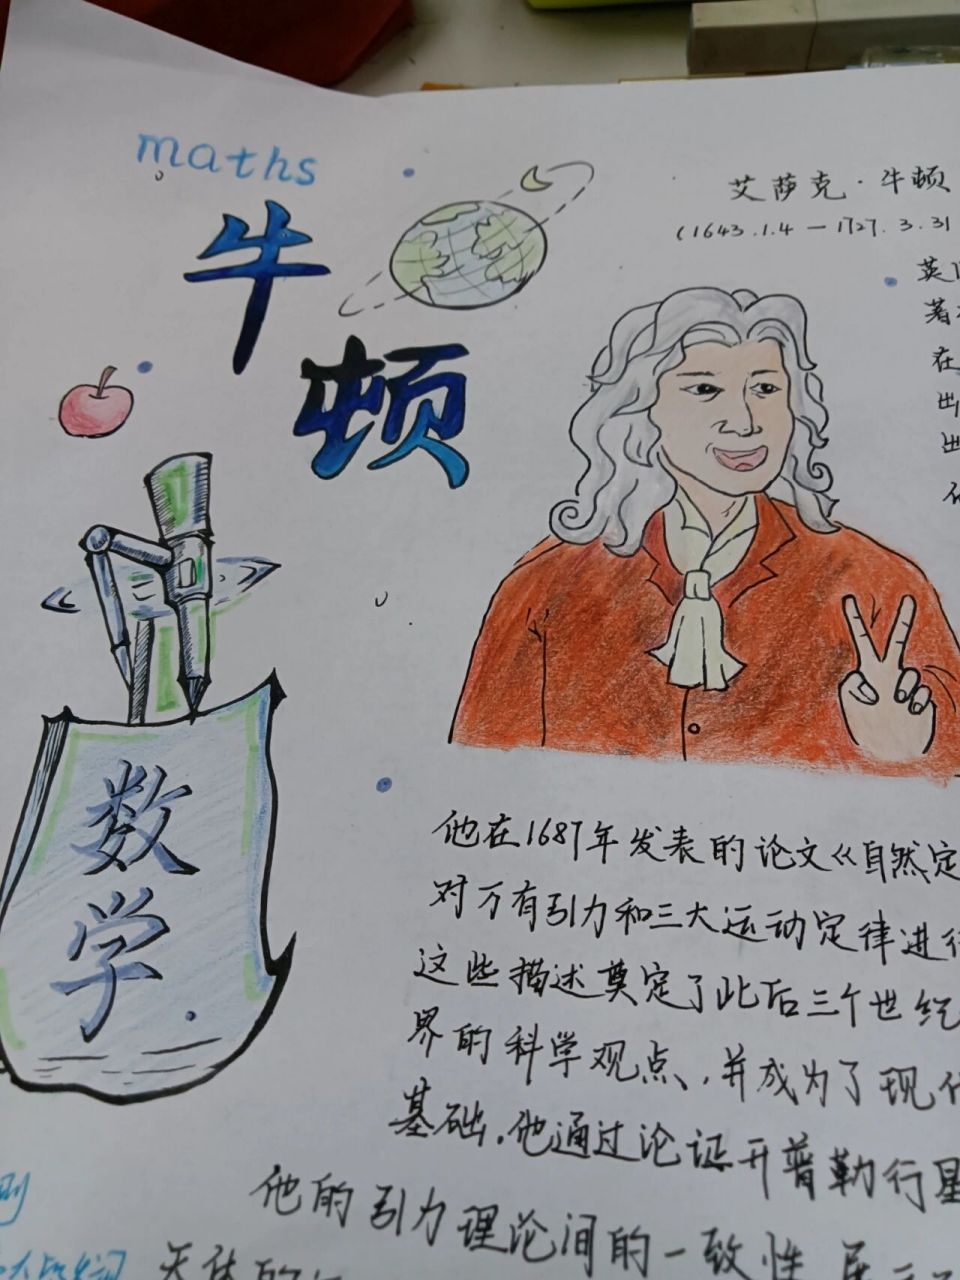 maths
牛
顿
艾萨克·牛顿
(1643.1.4—1727.3.31
英
著
在
出
出
数
学
他在1687年发表的论文《自然定
对万有引力和三大运动定律进行
这些描述奠定了此后三个世纪
界的科学观点,并成为了现代
基础.他通过论证开普勒行星
他的引力理论间的一致性,展
则
天体的